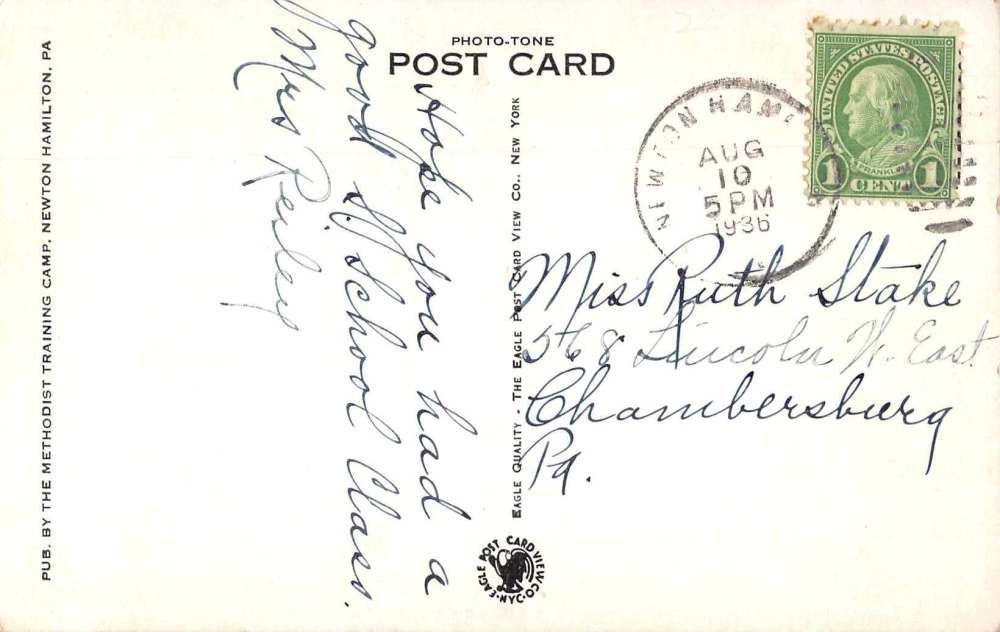 PHOTO-TONE
POST CARD
PUB. BY THE METHODIST TRAINING CAMP, NEWTON HAMILTON, PA
Hope you had a
good S. School Class.
Mrs Reiley
EAGLE QUALITY - THE EAGLE POST CARD VIEW CO., NEW YORK
NEWTON HAM
AUG
10
5 PM
1936
UNITED STATES POSTAGE
FRANKLIN
1 CENT 1
Miss Ruth Stake
568 Lincoln W. East
Chambersburg
Pa.
EAGLE POST CARD VIEW CO. N.Y.C.